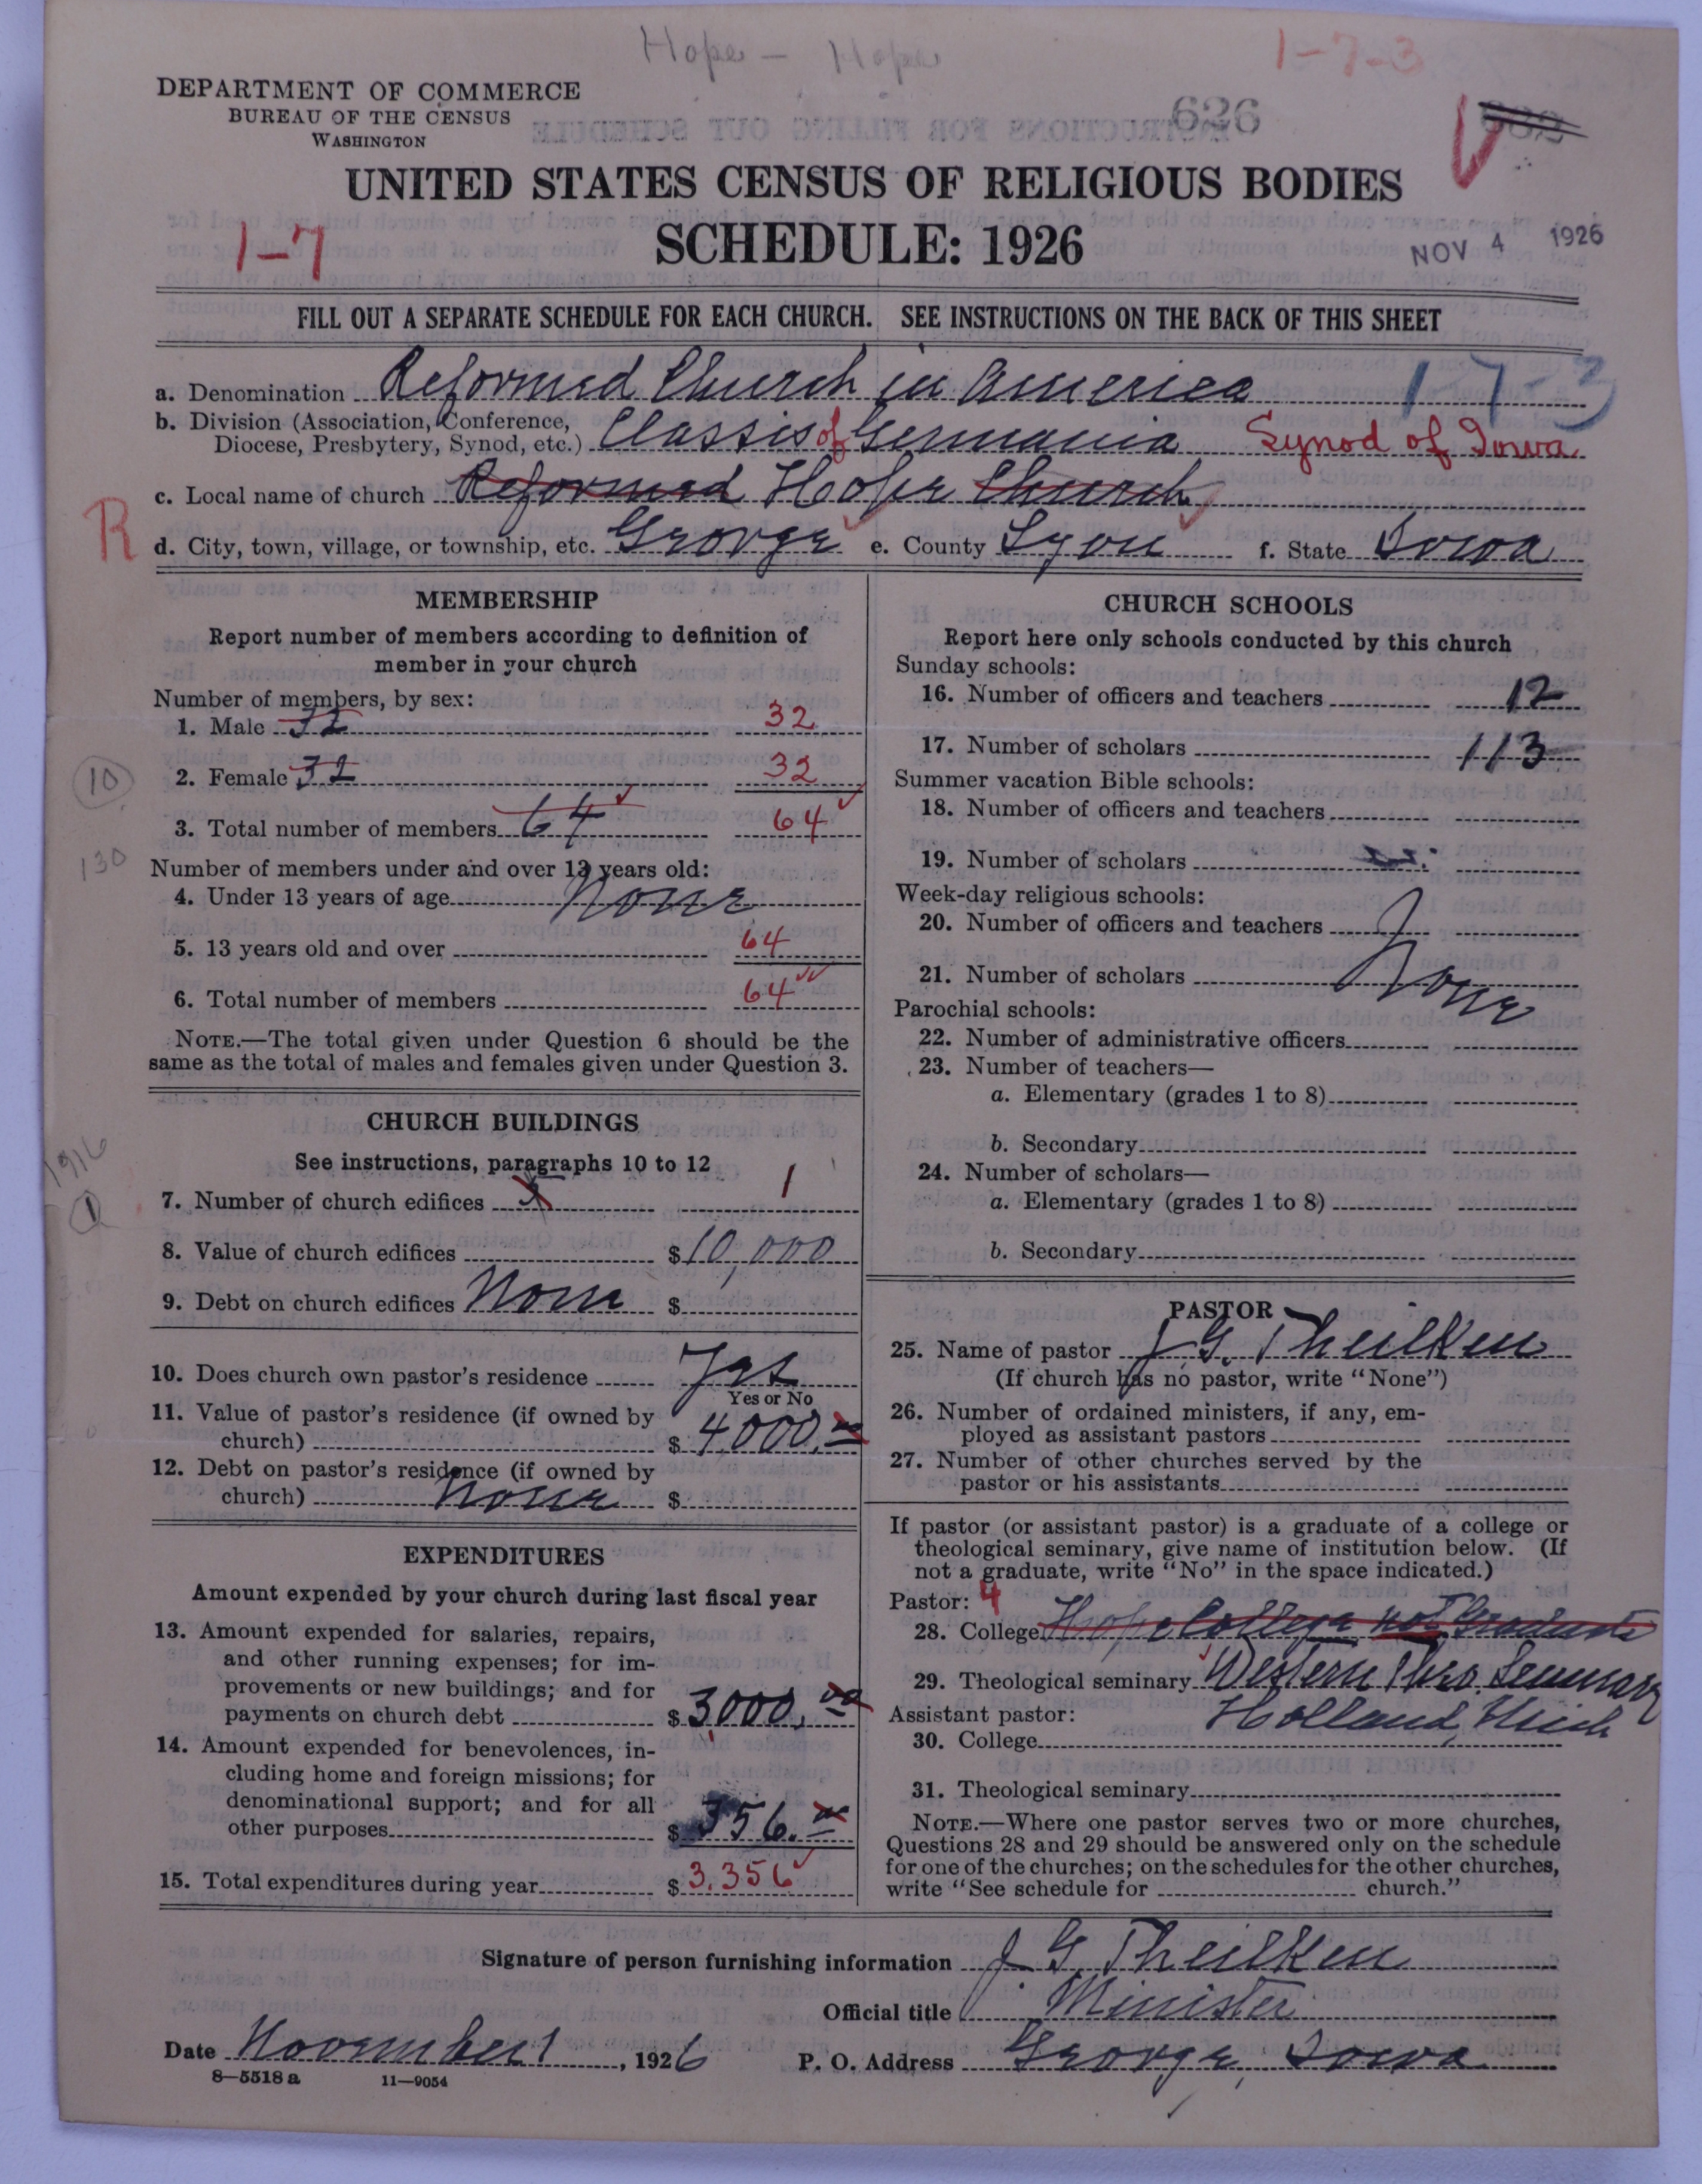 Hope - Hope
1-7-3
DEPARTMENT OF COMMERCE
BUREAU OF THE CENSUS
WASHINGTON
626
UNITED STATES CENSUS OF RELIGIOUS BODIES
SCHEDULE: 1926
1-7
NOV 4 1926
FILL OUT A SEPARATE SCHEDULE FOR EACH CHURCH. SEE INSTRUCTIONS ON THE BACK OF THIS SHEET
a. Denomination Reformed Church in America 1-7-3
b. Division (Association, Conference,
Diocese, Presbytery, Synod, etc.) Classis of Germania Synod of Iowa
c. Local name of church Reformed Hope Church
R
d. City, town, village, or township, etc. George e. County Lyon f. State Iowa
MEMBERSHIP
Report number of members according to definition of
member in your church
Number of members, by sex:
1. Male 32 32
2. Female 32 32
10
3. Total number of members 64 64
130
Number of members under and over 13 years old:
4. Under 13 years of age None
5. 13 years old and over 64
6. Total number of members 64
NOTE.—The total given under Question 6 should be the
same as the total of males and females given under Question 3.
CHURCH BUILDINGS
See instructions, paragraphs 10 to 12
1916
1
7. Number of church edifices 1
8. Value of church edifices $10,000
9. Debt on church edifices None $
10. Does church own pastor's residence Yes
Yes or No
11. Value of pastor's residence (if owned by
church) $ 4000.00
12. Debt on pastor's residence (if owned by
church) None $
EXPENDITURES
Amount expended by your church during last fiscal year
13. Amount expended for salaries, repairs,
and other running expenses; for im-
provements or new buildings; and for
payments on church debt $ 3000.00
14. Amount expended for benevolences, in-
cluding home and foreign missions; for
denominational support; and for all
other purposes $ 356.00
15. Total expenditures during year $ 3,356
CHURCH SCHOOLS
Report here only schools conducted by this church
Sunday schools:
16. Number of officers and teachers 12
17. Number of scholars 113
Summer vacation Bible schools:
18. Number of officers and teachers
19. Number of scholars
Week-day religious schools:
20. Number of officers and teachers
21. Number of scholars None
Parochial schools:
22. Number of administrative officers
23. Number of teachers—
a. Elementary (grades 1 to 8)
b. Secondary
24. Number of scholars—
a. Elementary (grades 1 to 8)
b. Secondary
PASTOR
25. Name of pastor J. G. Theilken
(If church has no pastor, write "None")
26. Number of ordained ministers, if any, em-
ployed as assistant pastors
27. Number of other churches served by the
pastor or his assistants
If pastor (or assistant pastor) is a graduate of a college or
theological seminary, give name of institution below. (If
not a graduate, write "No" in the space indicated.)
Pastor: 4
28. College Hope College not Graduate
29. Theological seminary Western Theo. Seminary
Assistant pastor: Holland, Mich
30. College
31. Theological seminary
NOTE.—Where one pastor serves two or more churches,
Questions 28 and 29 should be answered only on the schedule
for one of the churches; on the schedules for the other churches,
write "See schedule for church."
Signature of person furnishing information J G. Theilken
Official title Minister
Date November 1, 1926 P. O. Address George, Iowa
8—5518 a 11—9054